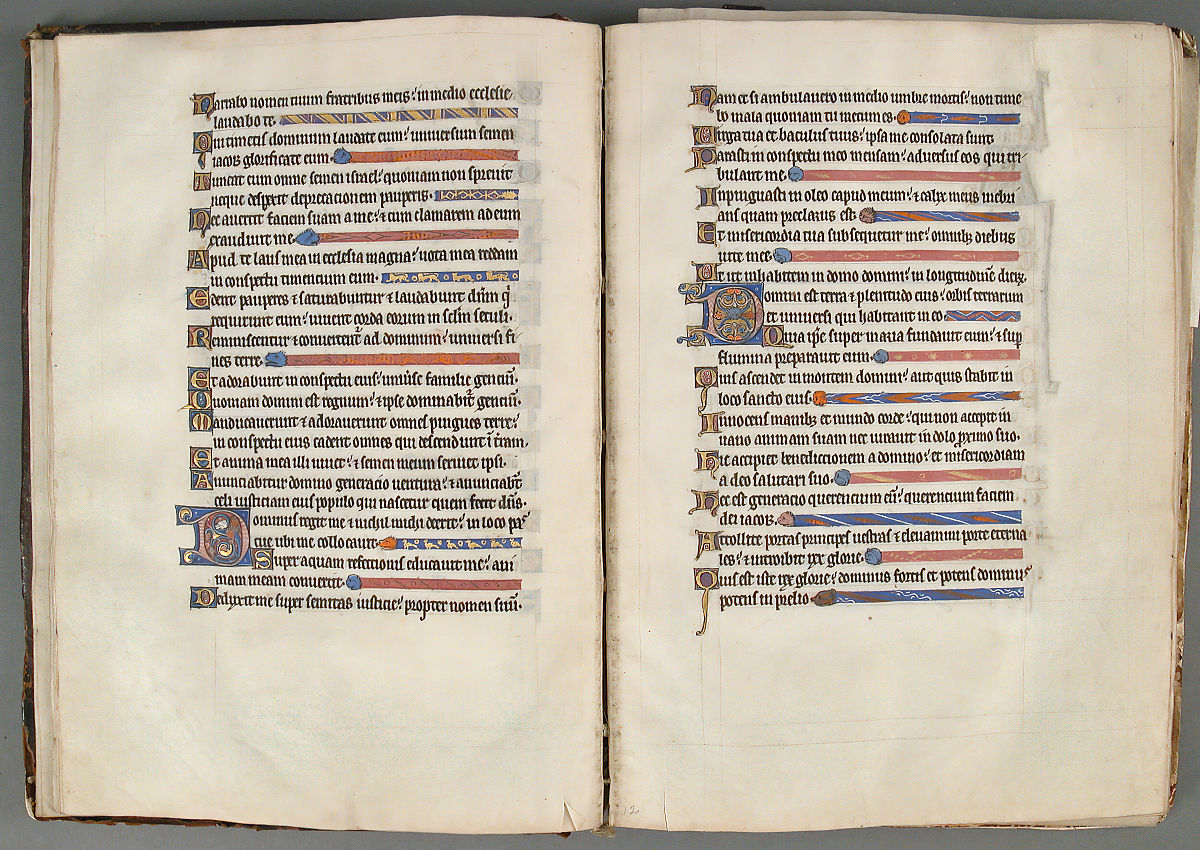 Narrabo nomen tuum fratribus meis: in medio ecclesie
laudabo te.
Qui timetis dominum laudate eum: universum semen
iacob glorificate eum.
Timeat eum omne semen israel: quoniam non sprevit
neque despexit deprecacionem pauperis.
Nec avertit faciem suam a me: & cum clamarem ad eum
exaudivit me.
Apud te laus mea in ecclesia magna: vota mea reddam
in conspectu timencium eum.
Edent pauperes & saturabuntur & laudabunt dnm q̄
requirunt eum: vivent corda eorum in sclm seculi.
Reminiscentur & convertent̄ ad dominum: universi fi
nes terre.
Et adorabunt in conspectu eius: universe familie genciū.
Quoniam domini est regnum: & ipse dominabit̄ genciū.
Manducaverunt & adoraverunt omnes pingues terre:
in conspectu eius cadent omnes qui descendunt ī terram.
Et anima mea illi vivet: & semen meum serviet ipsi.
Anunciabitur domino generacio ventura: & anunciabūt
celi iusticiam eius populo qui nascetur quem fecit dn̄s.
Dominus regit me & nichil michi deerit: in loco pas
cue ibi me collocavit.
Super aquam refectionis educavit me: ani
mam meam convertit.
Deduxit me super semitas iusticie: propter nomen suū.
Nam et si ambulavero in medio umbre mortis: non time
bo mala quoniam tu mecum es.
Virga tua et baculus tuus: ipsa me consolata sunt.
Parasti in conspectu meo mensam: adversus eos qui tri
bulant me.
Inpinguasti in oleo capud meum: & calix meus inebri
ans quam preclarus est.
Et misericordia tua subsequetur me: omnibz diebus
vite mee.
Et ut inhabitem in domo domini: in longitudinē dierum.
Domini est terra & plenitudo eius: orbis terrarum
et universi qui habitant in eo.
Quia ip̄e super maria fundavit eum: & sup̄
flumina preparavit eum.
Quis ascendet in montem domini: aut quis stabit in
loco sancto eius.
Innocens manibz et mundo corde: qui non accepit in
vano animam suam nec iuravit in dolo proximo suo.
Hic accipiet benedictionem a domino: et misericordiam
a deo salutari suo.
Hec est generacio querencium eū: querencium faciem
dei iacob.
Attollite portas principes vestras & elevamini porte eterna
les: & introibit rex glorie.
Quis est iste rex glorie: dominus fortis et potens dominus
potens in prelio.
27
12